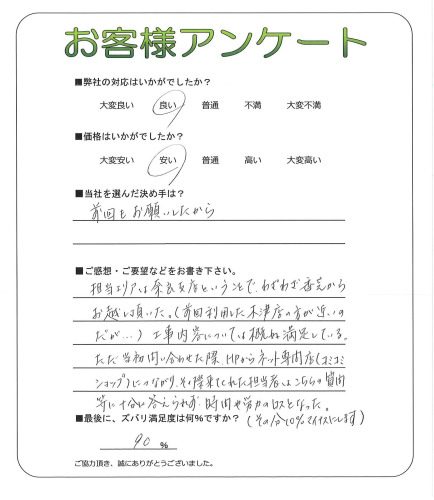 お客様アンケート
■弊社の対応はいかがでしたか?
大変良い 良い 普通 不満 大変不満
■価格はいかがでしたか?
大変安い 安い 普通 高い 大変高い
■当社を選んだ決め手は?
前回もお願いしたから
■ご感想・ご要望などをお書き下さい。
担当エリアは奈良支店ということで、わざわざ奈良から
お越し頂いた。(前回利用した木津店の方が近いの
だが…) 工事内容については概ね満足している。
ただ、当初問い合わせた際、HPからネット専門店(コミコミ
ショップ)につながり、その際来てくれた担当者はこちらの質問
等に十分に答えられず、時間や労力のロスとなった。
■最後に、ズバリ満足度は何%ですか?(その分10%マイナスにします)
90 %
ご協力頂き、誠にありがとうございました。